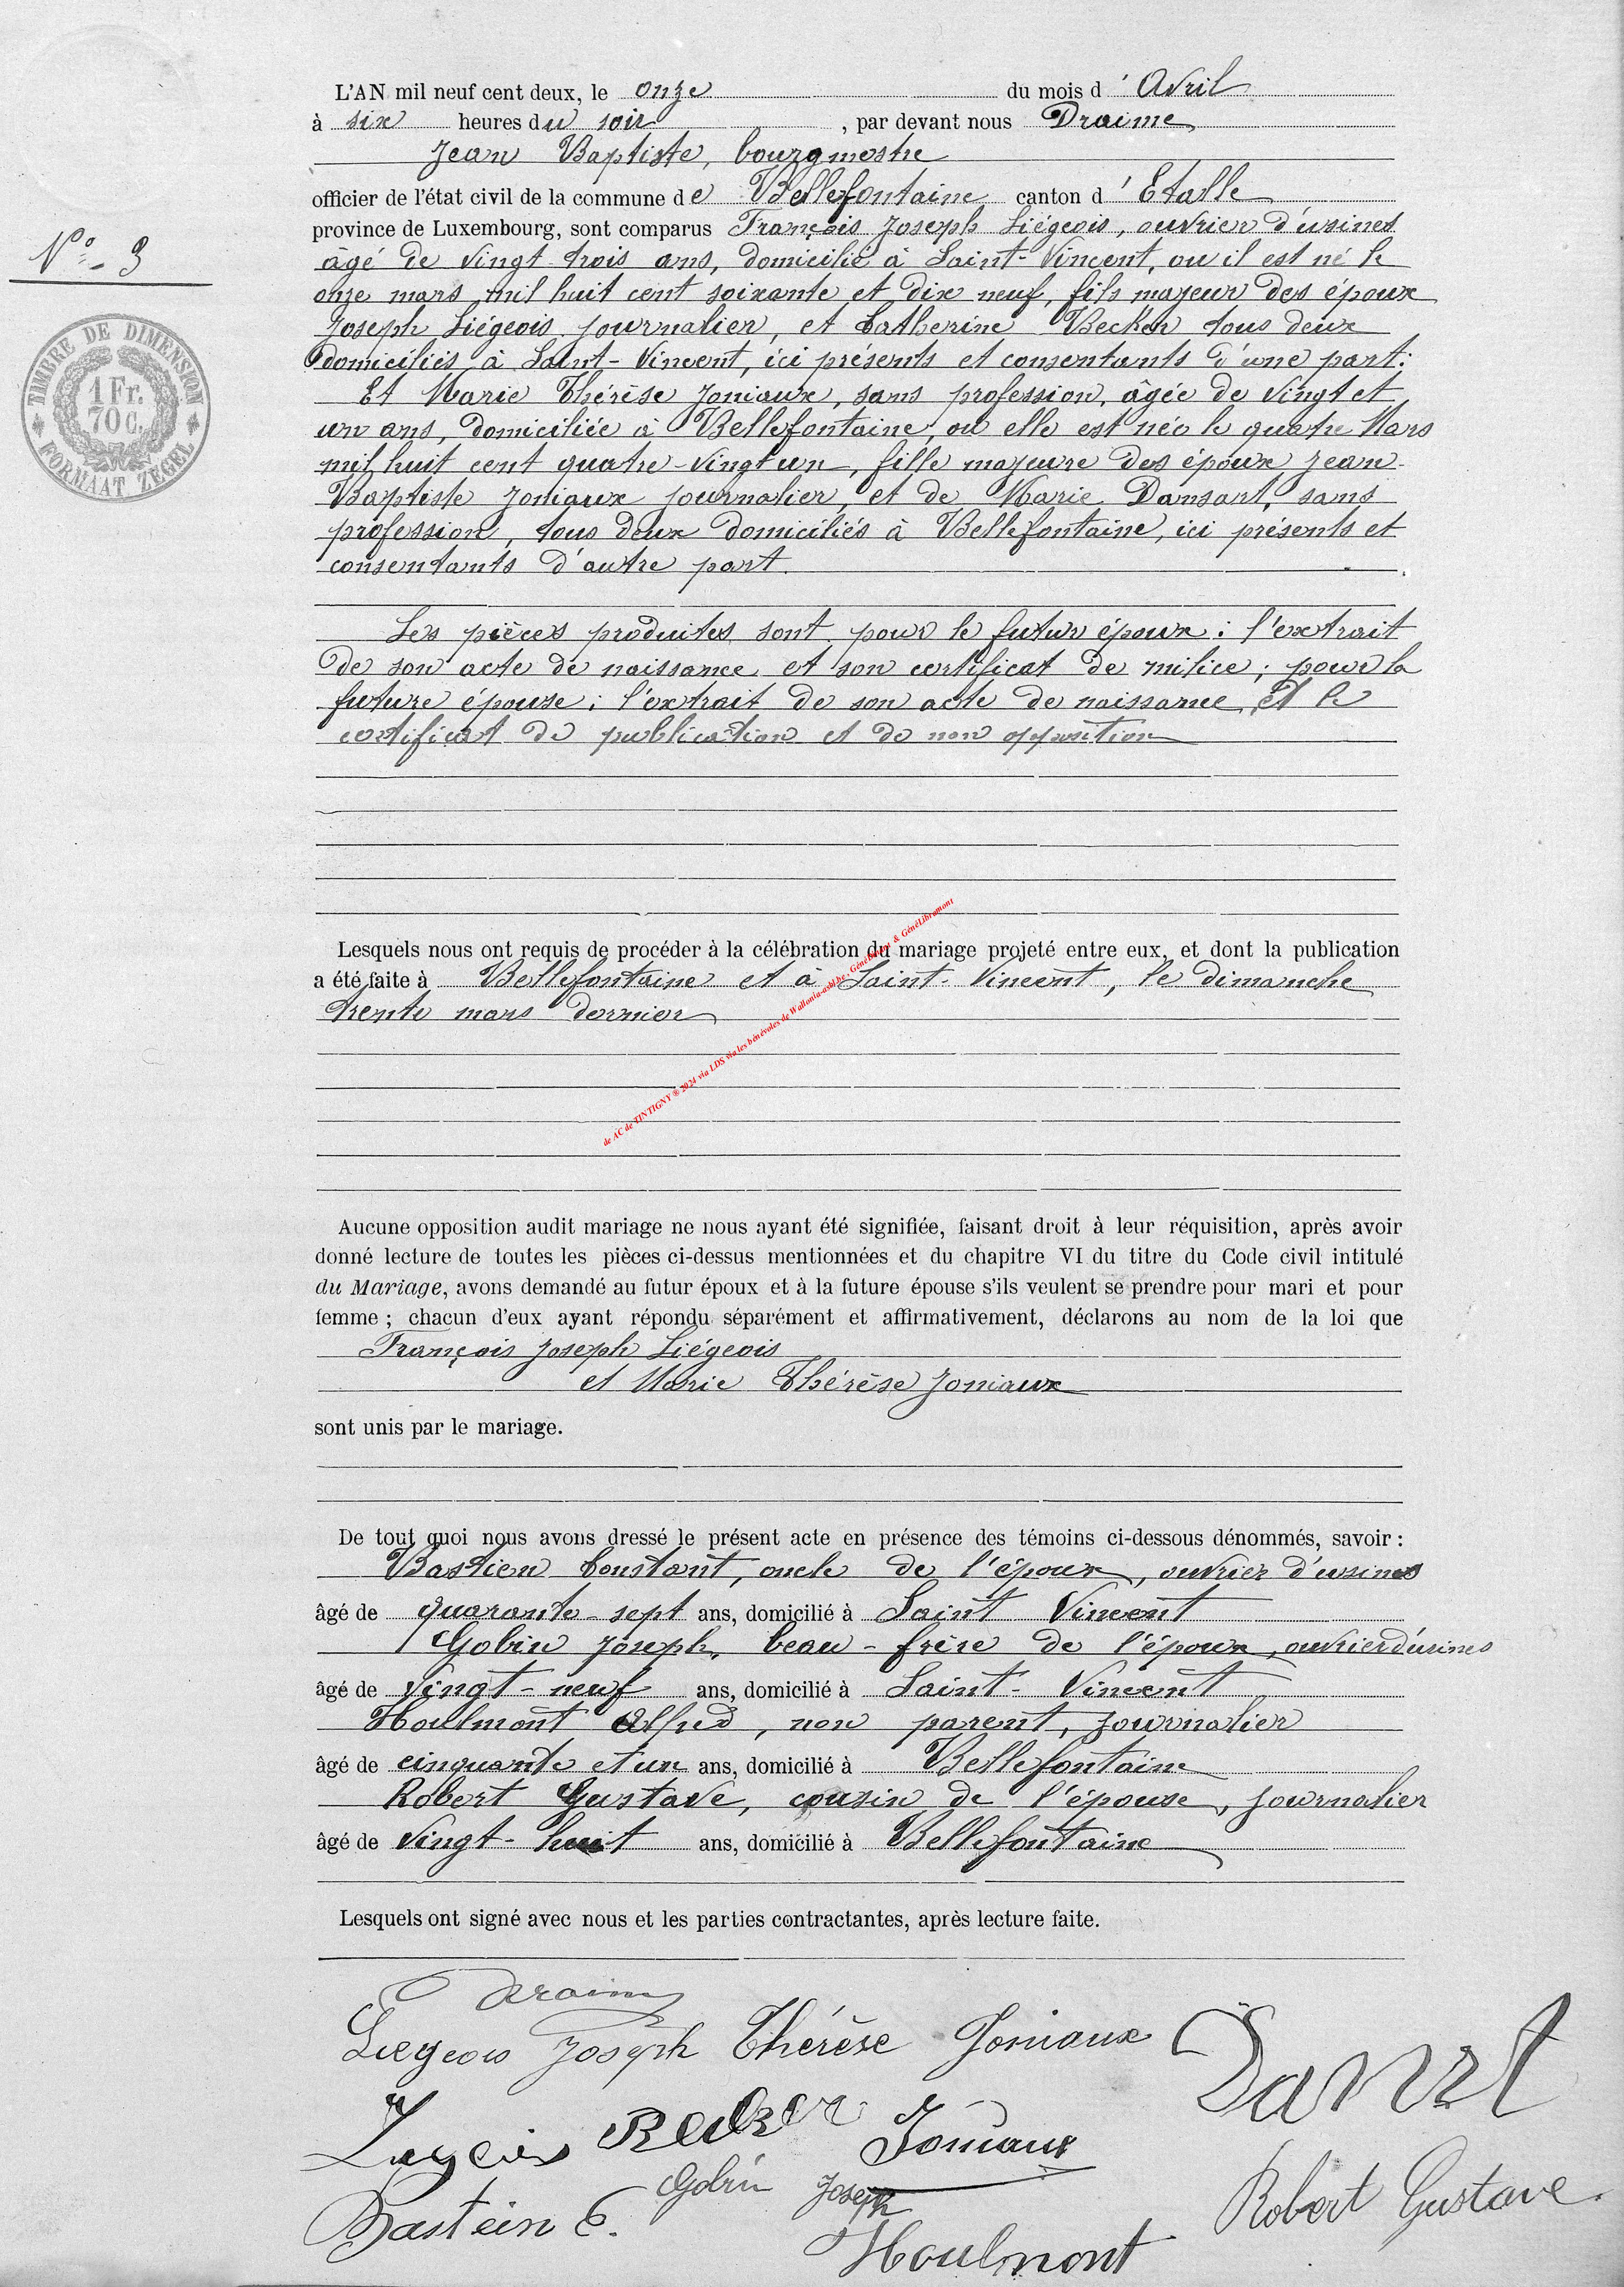 L'AN mil neuf cent deux, le onze du mois d'Avril
à six heures du soir, par devant nous Draime
Jean Baptiste, bourgmestre
officier de l'état civil de la commune de Bellefontaine canton d'Etalle
province de Luxembourg, sont comparus François Joseph Liégeois, ouvrier d'usines
N° 9
âgé de vingt trois ans, domicilié à Saint-Vincent, ou il est né le
onze mars mil huit cent soixante et dix neuf, fils majeur des époux
Joseph Liégeois journalier, et Catherine Becker tous deux
domiciliés à Saint-Vincent, ici présents et consentants d'une part:
TIMBRE DE DIMENSION
1 Fr.
70 C.
FORMAAT ZEGEL
Et Marie Thérèse Joniaux, sans profession, âgée de vingt et
un ans, domiciliée à Bellefontaine, ou elle est née le quatre Mars
mil huit cent quatre-vingt un, fille majeure des époux Jean-
Baptiste Joniaux journalier, et de Marie Dansart, sans
profession, tous deux domiciliés à Bellefontaine, ici présents et
consentants d'autre part.
Les pièces produites sont pour le futur époux: l'extrait
de son acte de naissance et son certificat de milice; pour la
future épouse: l'extrait de son acte de naissance et le
certificat de publication et de non opposition
Lesquels nous ont requis de procéder à la célébration du mariage projeté entre eux, et dont la publication
a été faite à Bellefontaine et à Saint-Vincent, le dimanche
trente mars dernier
de AC de TINTIGNY ® 2024 via LDS via les bénévoles de Wallonia-asbl & GénéLibramont
Aucune opposition audit mariage ne nous ayant été signifiée, faisant droit à leur réquisition, après avoir
donné lecture de toutes les pièces ci-dessus mentionnées et du chapitre VI du titre du Code civil intitulé
du Mariage, avons demandé au futur époux et à la future épouse s'ils veulent se prendre pour mari et pour
femme ; chacun d'eux ayant répondu séparément et affirmativement, déclarons au nom de la loi que
François Joseph Liégeois
et Marie Thérèse Joniaux
sont unis par le mariage.
De tout quoi nous avons dressé le présent acte en présence des témoins ci-dessous dénommés, savoir :
Bastien Constant, oncle de l'époux, ouvrier d'usines
âgé de quarante-sept ans, domicilié à Saint Vincent
Gobin Joseph, beau-frère de l'époux, ouvrier d'usines
âgé de vingt-neuf ans, domicilié à Saint-Vincent
Houlmont Alfred, non parent, journalier
âgé de cinquante et un ans, domicilié à Bellefontaine
Robert Gustave, cousin de l'épouse, journalier
âgé de vingt-huit ans, domicilié à Bellefontaine
Lesquels ont signé avec nous et les parties contractantes, après lecture faite.
Draime
Liegeois Joseph Thérèse Joniaux
Becker Joniaux
Gobin Joseph
Bastein C.
Robert Gustave
Houlmont